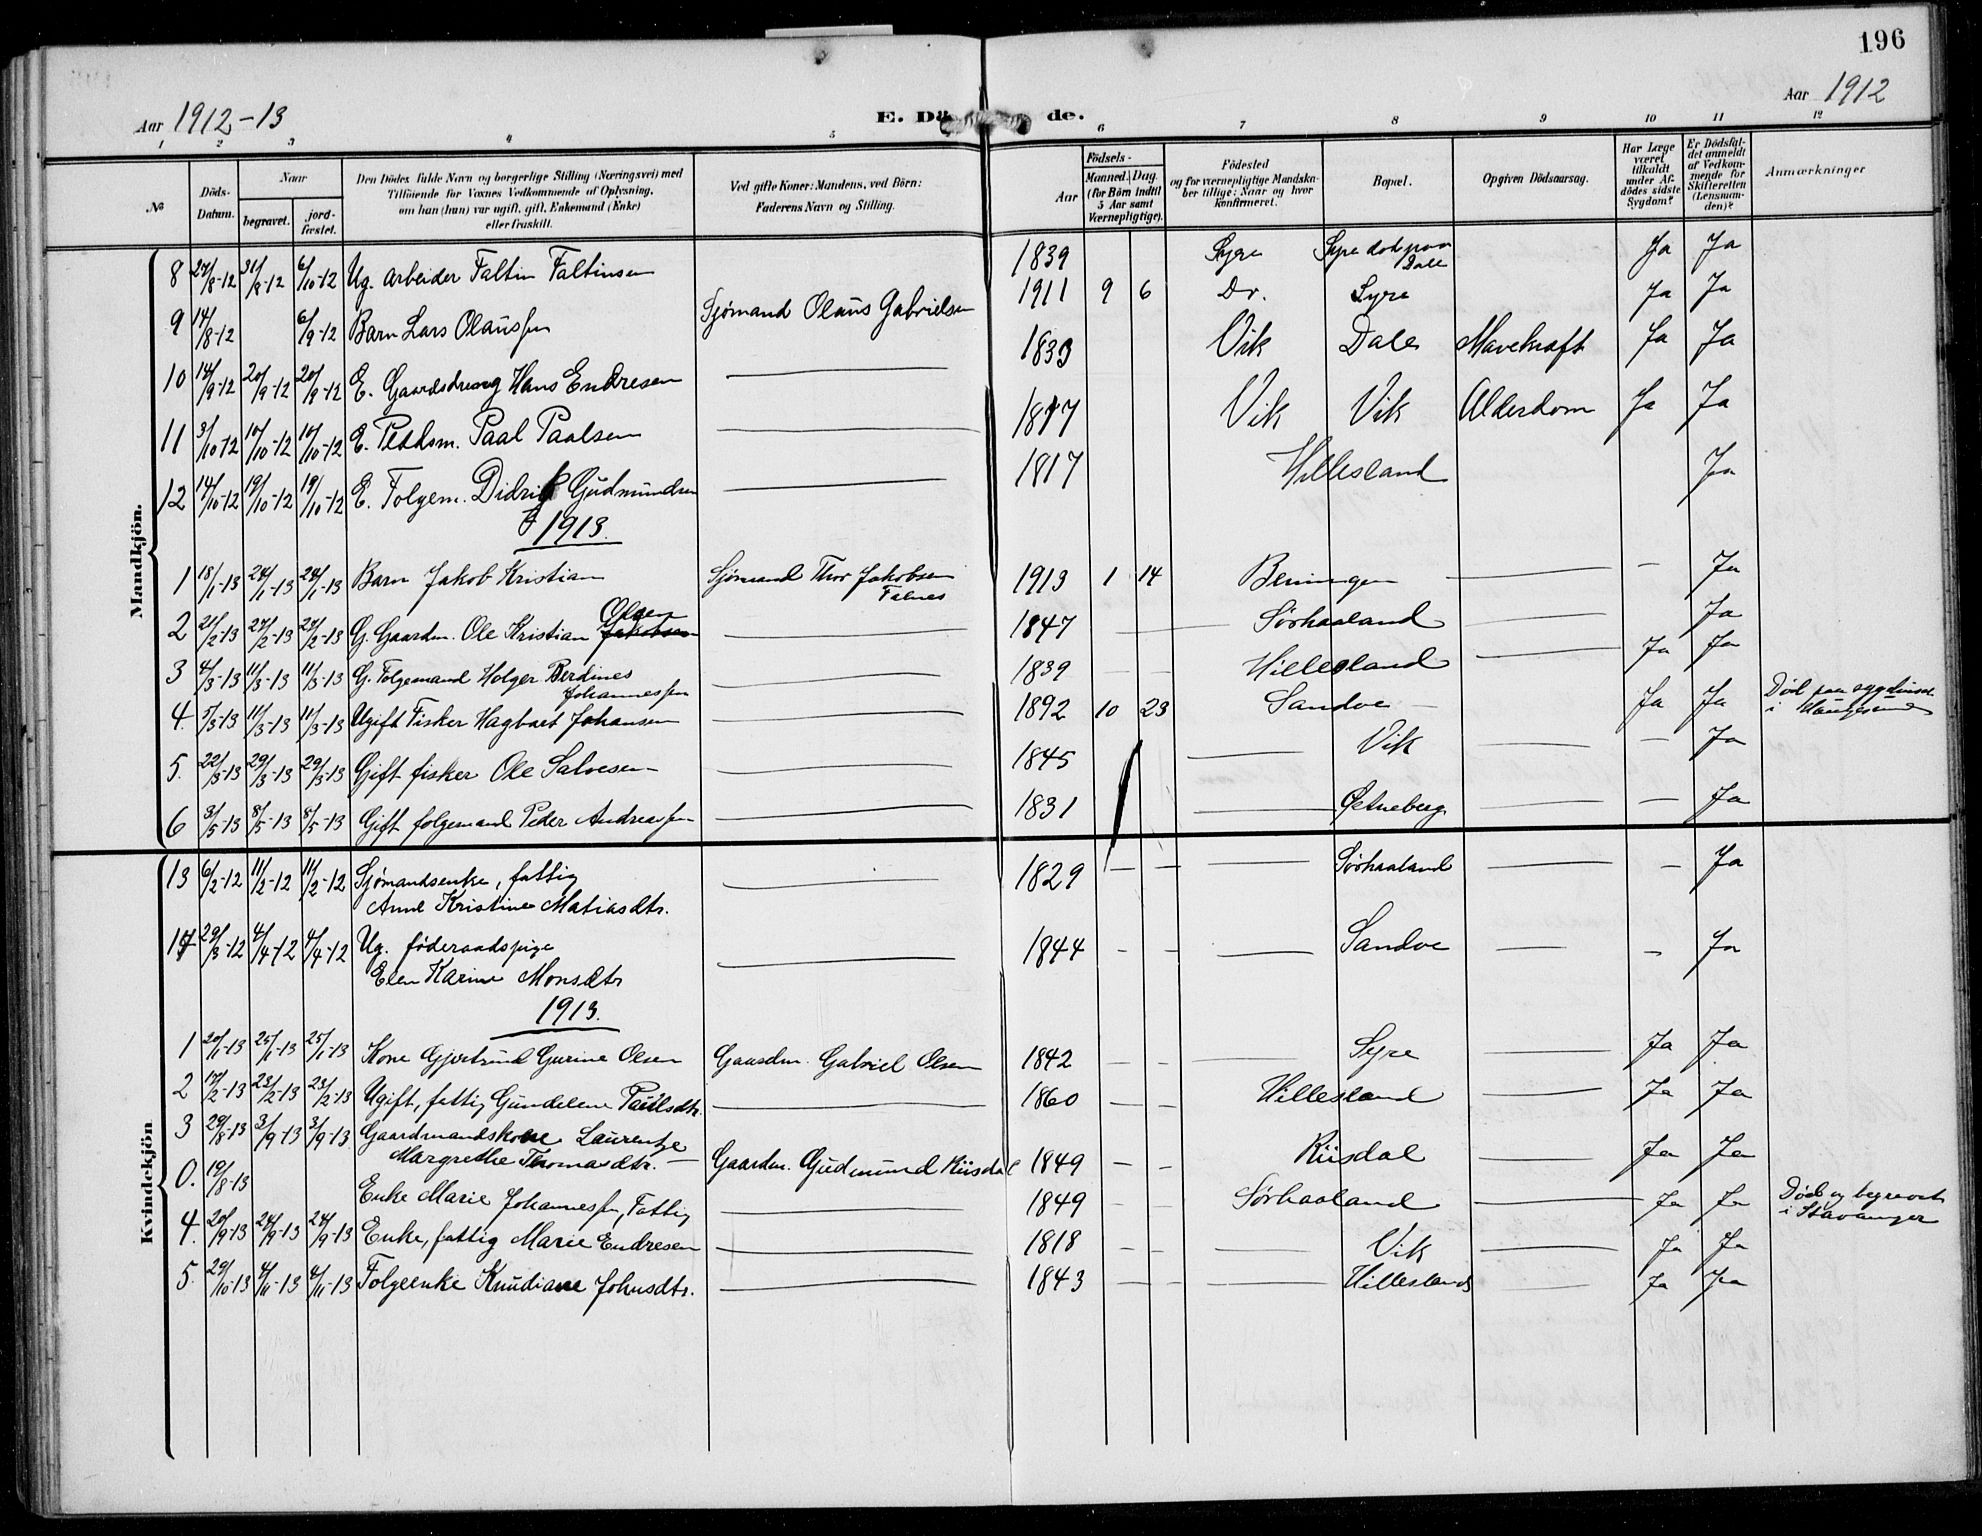 196
Aar 1912-13
E. Dä de.
Aar 1912
1 2 3 4 5 6 7 8 9 10 11 12
№
Döds-Datum.
Naar
begravet.
jord-fæstet.
Den Dödes fulde Navn og borgerlige Stilling (Næringsvei) med
Tilföiende for Voxnes Vedkommende af Oplysning,
om han (hun) var ugift, gift, Enkemand (Enke)
eller fraskilt.
Ved gifte Koner: Mandens, ved Börn:
Faderens Navn og Stilling.
Födsels-
Aar
Maaned. Dag.
(for Börn indtil
5 Aar samt
Værnepligtige).
Födested
og for værnepligtige Mandska-
ber tillige: Naar og hvor
Konfirmeret.
Bopæl.
Opgiven Dödsaarsag.
Har Læge
været
tilkaldt
under Af-
dödes sidste
Sygdom?
Er Dödsfal-
det anmeldt
af Vedkom-
mende for
Skifteretten
(Lensman-
den)?
Anmærkninger
Mandkjön.
8 27/8-12 31/8-12 6/10-12 Ug. Arbeider Faltin Faltinsen 1839 Syre Syre død paa Dale Ja Ja
9 14/8-12 6/9-12 Barn Lars Olaussen Sjømand Olaus Gabrielsen 1911 9 6 Do. Syre Ja Ja
10 14/9-12 20/9-12 20/9-12 E. Gaardsdreng Hans Endresen — 1833 Vik Dale Mavekræft Ja Ja
11 3/10-12 10/10-12 10/10-12 E. Pladsm. Paal Paalsen — 1817 Vik Vik Alderdom Ja Ja
12 14/10-12 19/10-12 19/10-12 E. Folgem. Didrik Gudmundsen — 1817 Hillesland Ja
1913.
1 18/1-13 24/1-13 24/1-13 Barn Jakob Kristian Sjømand Thor Jakobsen Falnes 1913 1 14 Beiningen — — Ja
2 21/2-13 27/2-13 27/2-13 G. Gaardm. Ole Kristian Jakobsen Olsen — 1847 — Sørhaaland — Ja
3 4/3-13 11/3-13 11/3-13 G. Folgemand Holger Berdines Johannessen — 1839 — — Hillesland — Ja Ja
4. 5/3-13 11/3-13 11/3-13 Ugift Fisker Hagbart Johansen — 1892 10 23 Sandve — Ja Ja Død paa sygehuset i Haugesund
5. 22/3-13 29/3-13 29/3-13 Gift fisker Ole Salvesen — 1845 — Vik — — Ja
6 3/5-13 8/5-13 8/5-13 Gift folgemand Peder Andreassen — 1831 — Østneberg — — Ja
Kvindekjön
13 6/2-12 11/2-12 11/2-12 Sjømandsenke, fattig
Anne Kristine Matiasdtr. — 1829 — — — Sørhaaland — — Ja
14 29/3-12 4/4-12 4/4-12 Ug. føderaadspige
Elen Karine Monsdtr — 1844 — — — Sandve — — Ja
1913.
1 20/1-13 25/1-13 25/1-13 Kone Gjertrud Gurine Olsen Gaardm. Gabriel Olsen 1842 — — — Syre — Ja Ja
2 17/2-13 23/2-13 23/2-13 Ugift, fattig Gundelene Paulsdtr. — 1860 — — Hillesland — Ja Ja
3 29/8-13 3/9-13 3/9-13 Gaardmandskone Laurentze
Margrethe Thomasdtr. — Gaardm. Gudmund Kiisdal 1849 — — Kiisdal Ja Ja
0. 19/8-13 Enke Marie Johannessen, Fattig — 1849 — — Sørhaaland — Ja Ja Død og begravet i Stavanger
4. 20/9-13 24/9-13 24/9-13 Enke, fattig Marie Endresen — 1818 — — — Vik — Ja Ja
5. 29/10-13 4/11-13 4/11-13 Folgeenke Knudiane Johnsdtr. — 1843 — — — Hillesland — Ja Ja